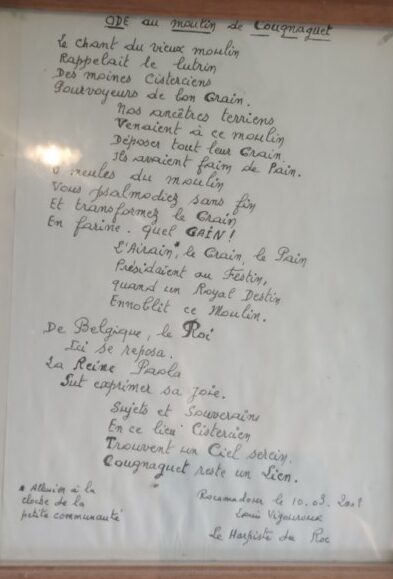 ODE au moulin de Cougnaguet
Le chant du vieux moulin
Rappelait le lutrin
Des moines Cisterciens
Pourvoyeurs de bon Grain.
Nos ancêtres terriens
Venaient à ce moulin
Déposer tout leur Grain.
Ils avaient faim de Pain.
O meules du moulin
Vous psalmodiez sans fin
Et transformez le Grain
En farine. Quel GAIN!
L'Airain*, le Grain, le Pain
Présidaient au Festin,
quand un Royal Destin
Ennoblit ce Moulin.
De Belgique, le Roi
Ici se reposa.
La Reine Paola
Sut exprimer sa joie.
Sujets et Souverains
En ce lieu Cistercien
Trouvent un Ciel serein.
Cougnaguet reste un Lien.
* Allusion à la
cloche de la
petite communauté
Rocamadour le 10.03.
Louis Vigouroux
Le Harpiste du Roc